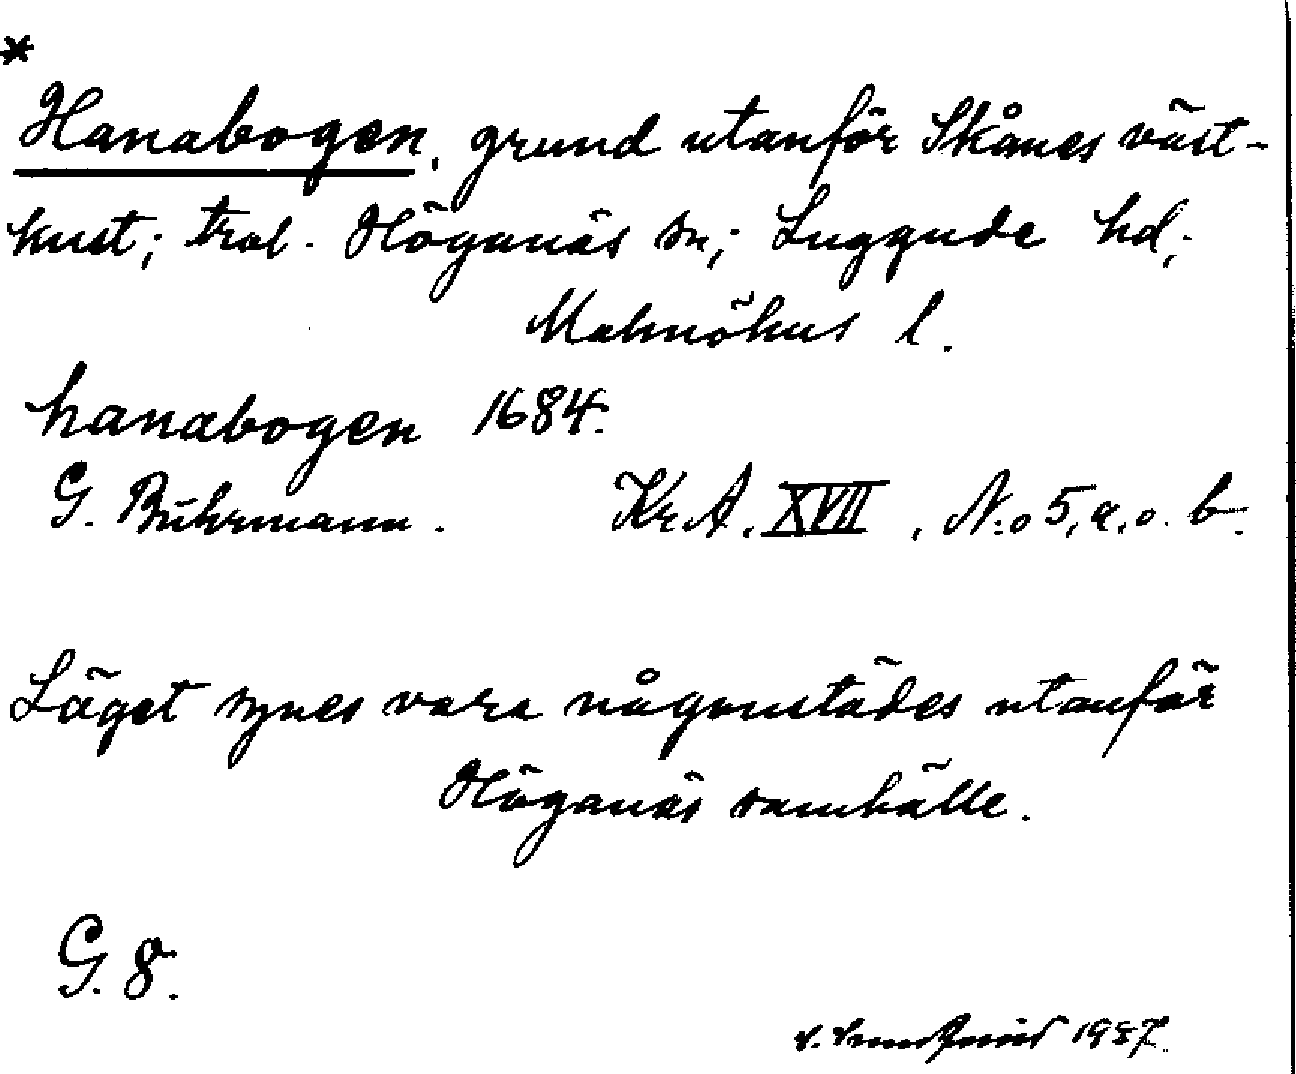 *
Hanabogen, grund utanför Skånes väst-
kust; trol. Höganäs sn; Luggude hd;
Malmöhus l.
hanabogen 1684.
G. Buhrmann. Kr.A. XVII, N:o 5, a. o. b.
Läget synes vara någonstädes utanför
Höganäs samhälle.
G. 8.
1937.